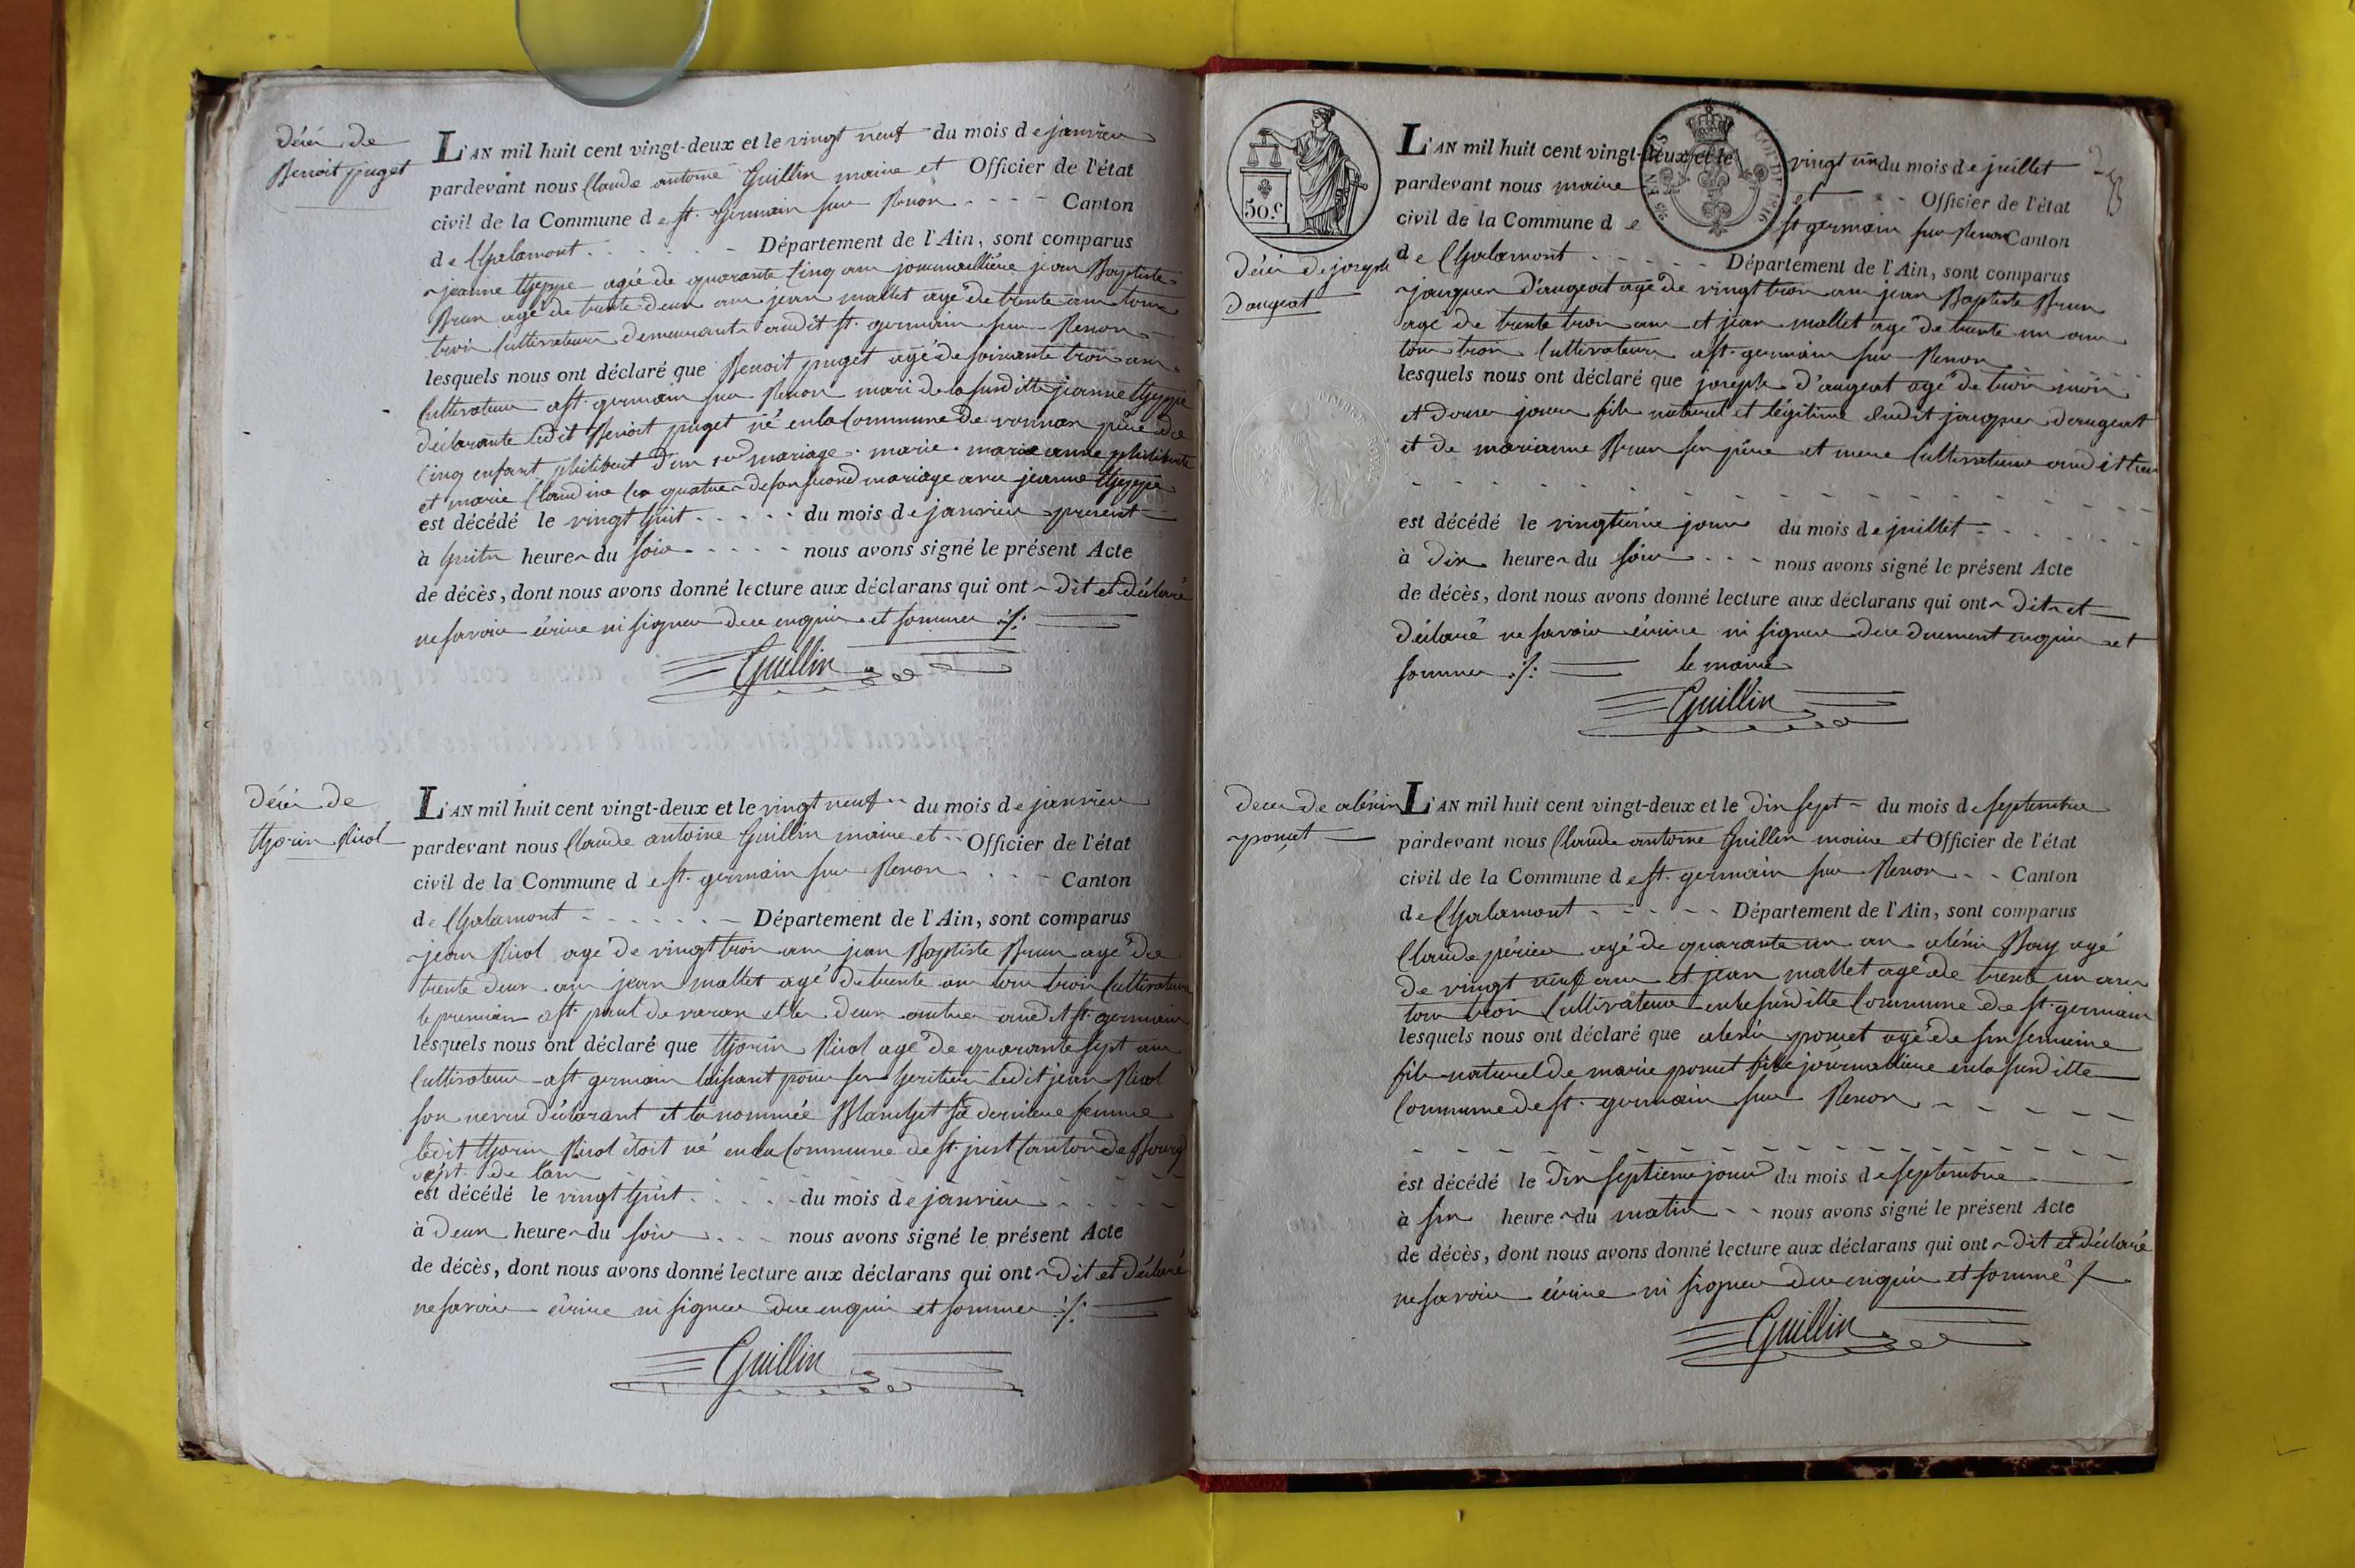 décès de
Benoit puget
L'AN mil huit cent vingt-deux et le vingt neuf du mois de janvier
pardevant nous Claude antoine Guillin maire et Officier de l'état
civil de la Commune de st. Germain sur Renon Canton
de Chalamont Département de l'Ain, sont comparus
jeanne agée de quarante cinq ans journaillière jean Baptiste
Brun agé de trente deux ans jean mallet agé de trente ans tous
trois Cultivateurs demeurants audit st. germain sur Renon
lesquels nous ont déclaré que Benoit puget agé de soixante trois ans
Cultivateur a st. germain sur Renon mari de la susditte jeanne
déclarante ledit Benoit puget né en la Commune de père de
Cinq enfant philibert d'un 1er mariage. marie. marie anne philiberte
et marie Claudine les quatre de son second mariage avec jeanne
est décédé le vingt huit du mois de janvier present
à huits heures du soir nous avons signé le présent Acte
de décès, dont nous avons donné lecture aux déclarans qui ont dit et déclaré
ne savoir écrire ni signer de ce enquis et sommés ./.
Guillin
décès de
Rivol
L'AN mil huit cent vingt-deux et le vingt neuf du mois de janvier
pardevant nous Claude antoine Guillin maire et Officier de l'état
civil de la Commune de st. germain sur Renon Canton
de Chalamont Département de l'Ain, sont comparus
jean Rivol agé de vingt trois ans jean Baptiste Brun agé de
trente deux ans jean mallet agé de trente ans tous trois Cultivateurs
le premier a st. paul de varax et les deux autres audit st. germain
lesquels nous ont déclaré que Rivol agé de quarante sept ans
Cultivateur a st. germain laissant pour ses heritiers ledit jean Rivol
son neveu déclarant et la nommée Blanchet sa derniere femme
ledit Rivol étoit né en la Commune de st. just Canton de Bourg
dépt. de l'ain
est décédé le vingt huit du mois de janvier
à deux heures du soir nous avons signé le présent Acte
de décès, dont nous avons donné lecture aux déclarans qui ont dit et déclaré
ne savoir écrire ni signer de ce enquis et sommés ./.
Guillin
50 c
TIMBRE ROYAL
décès de joseph
daugeat
L'AN mil huit cent vingt-deux et le vingt un du mois de juillet
pardevant nous maire et Officier de l'état
civil de la Commune de st germain sur Renon Canton
de Chalamont Département de l'Ain, sont comparus
jacques d'augeat agé de vingt trois ans jean Baptiste Brun
agé de trente trois ans et jean mallet agé de trente un ans
tous trois Cultivateurs a st. germain sur Renon
lesquels nous ont déclaré que joseph d'augeat agé de trois mois
et douze jours fils naturel et légitime dudit jacques daugeat
et de marianne Brun ses père et mere Cultivateurs audit lieu
est décédé le vingtieme jour du mois de juillet
à dix heures du soir nous avons signé le présent Acte
de décès, dont nous avons donné lecture aux déclarans qui ont dit et
déclaré ne savoir écrire ni signer de ce duement enquis et
sommés ./. le maire
Guillin
deces de alexis
poncet
L'AN mil huit cent vingt-deux et le dix sept du mois de septembre
pardevant nous Claude antoine Guillin maire et Officier de l'état
civil de la Commune de st. germain sur Renon Canton
de Chalamont Département de l'Ain, sont comparus
Claude périer agé de quarante un an alexis Bay agé
de vingt neuf ans et jean mallet agé de trente un ans
tous trois Cultivateurs en la susditte Commune de st. germain
lesquels nous ont déclaré que alexis poncet agé de six semaine
fils naturel de marie poncet fille journalliere en la susditte
Commune de st. germain sur Renon
est décédé le dix septieme jour du mois de septembre
à six heures du matin nous avons signé le présent Acte
de décès, dont nous avons donné lecture aux déclarans qui ont dit et déclaré
ne savoir écrire ni signer de ce enquis et sommé ./.
Guillin